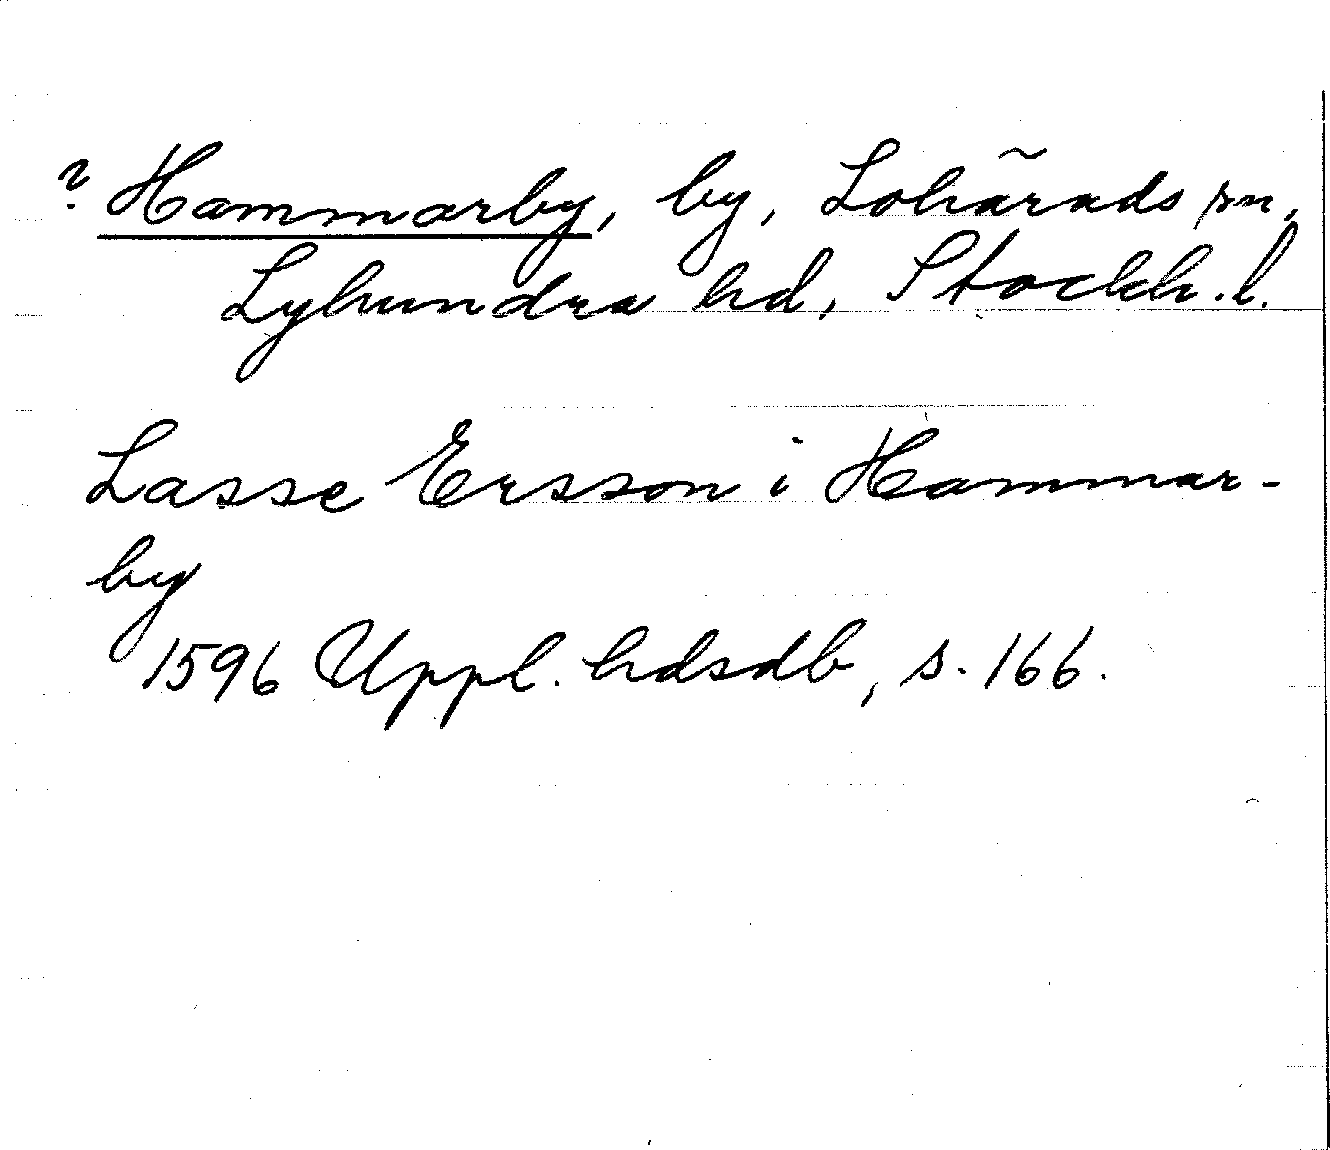 ? Hammarby, by, Lohärads sn,
Lyhundra hd, Stockh. l.
Lasse Ersson i Hammar-
by
1596 Uppl. hdsdb, s. 166.